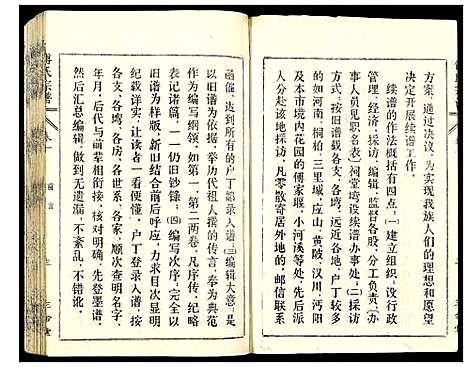 方案，通过决议，为实现我族人们的理想和愿望
决定开展续谱工作。
续谱的作法概括有四点：㈠建立组织，设行政
管理，经济，采访，编辑，监督各股，分工负责（办
事人员见职名表）祠堂塆设续谱办事处；㈡采访
方式：按旧谱载各支，各塆，远近各地，户丁较多
的如河南，桐柏，三里城，应山，黄陂，汉川，沔阳
本县境内花园的傅家堰，小河溪等处，先后派
人分赴该地採访，凡零散寄居外地的，邮信联系
函催，达到所有的户丁都录入谱；㈢编辑大意：是
以旧谱为依据，举历代祖人撰的传言，奉为典范
作为编写纲领，如第一，第二两卷，凡序传，纪略
表记诸篇，一一仍旧钞錄。㈣编写次序：完全以
旧谱为样版，新旧结合前后呼应，力求目次显明
纪载详实，让读者一看便明。户丁登录入谱，按
各支，各塆，各房，各世系，各家，顺次查明名字，
年月，后代与前辈相衔接，核对明确，先登墨谱，
然后汇总编辑，做到无遗漏，不紊乱，不错讹。
氏宗谱
卷一